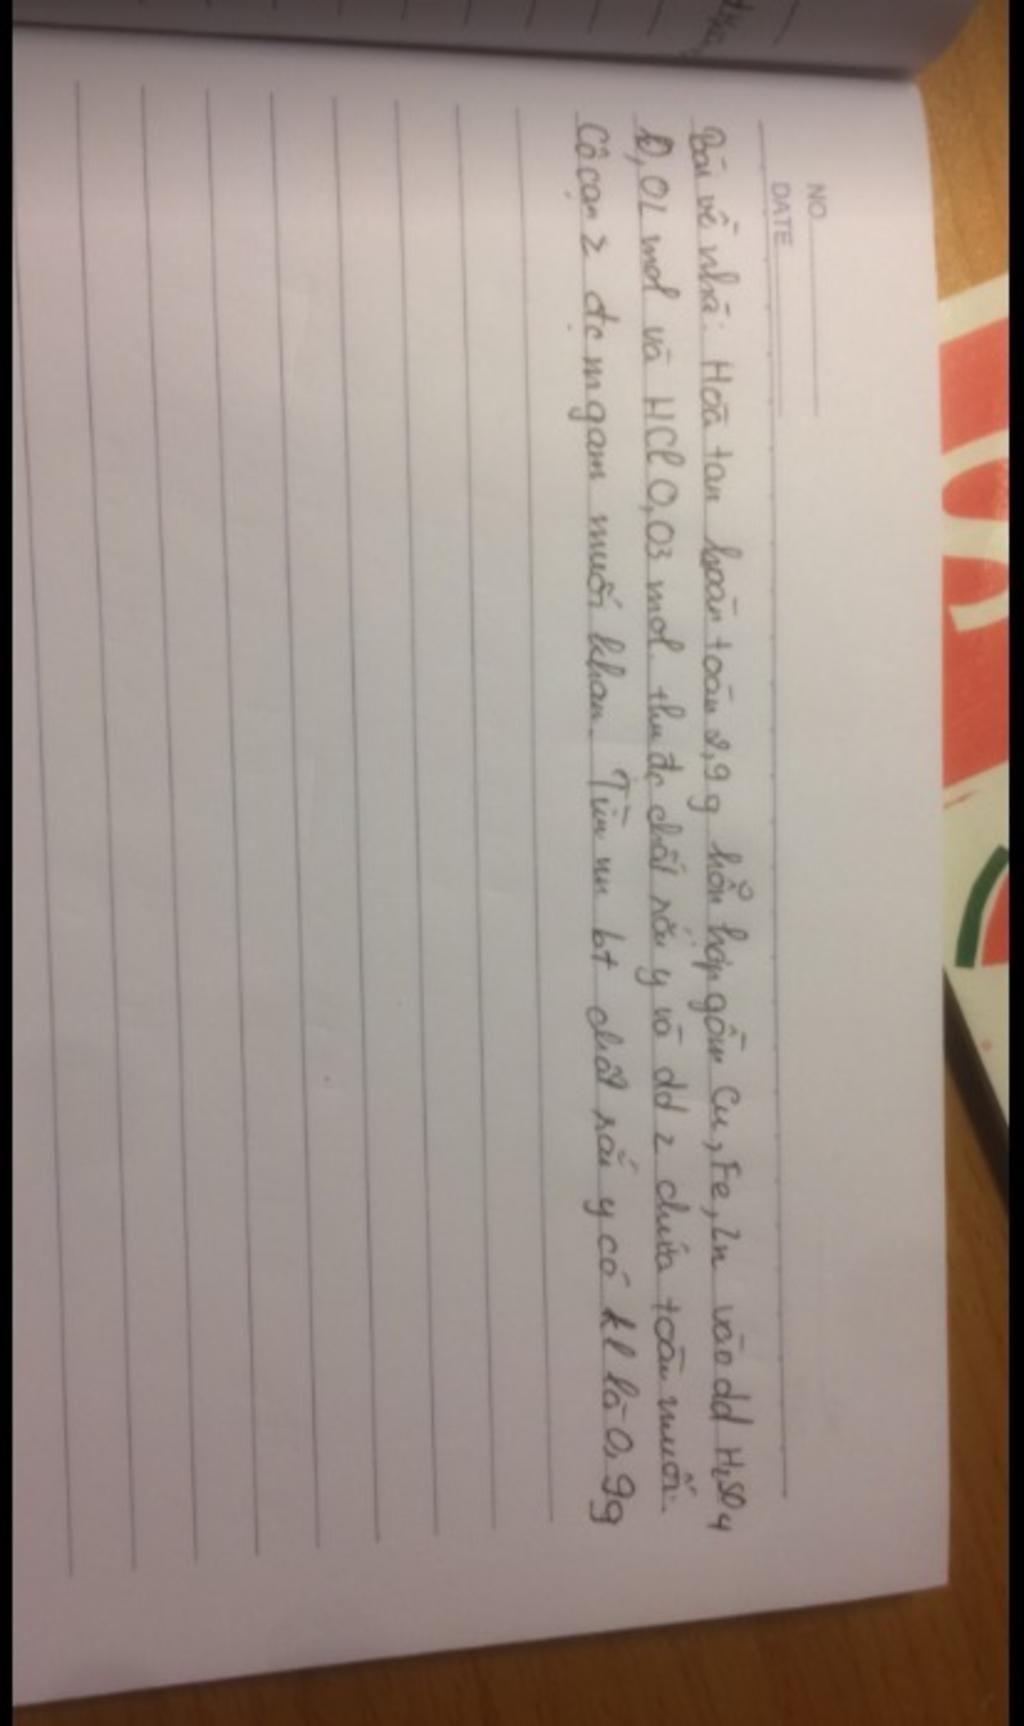 NO
DATE
Bài về nhà: Hoà tan hoàn toàn 2,9 g hỗn hợp gồm Cu, Fe, Zn vào dd H2SO4
0,01 mol và HCl 0,03 mol. thu đc chất rắn y và dd z chứa toàn muối.
Cô cạn z đc m gam muối khan. Tìm m bt chất rắn y có kl là 0,9g